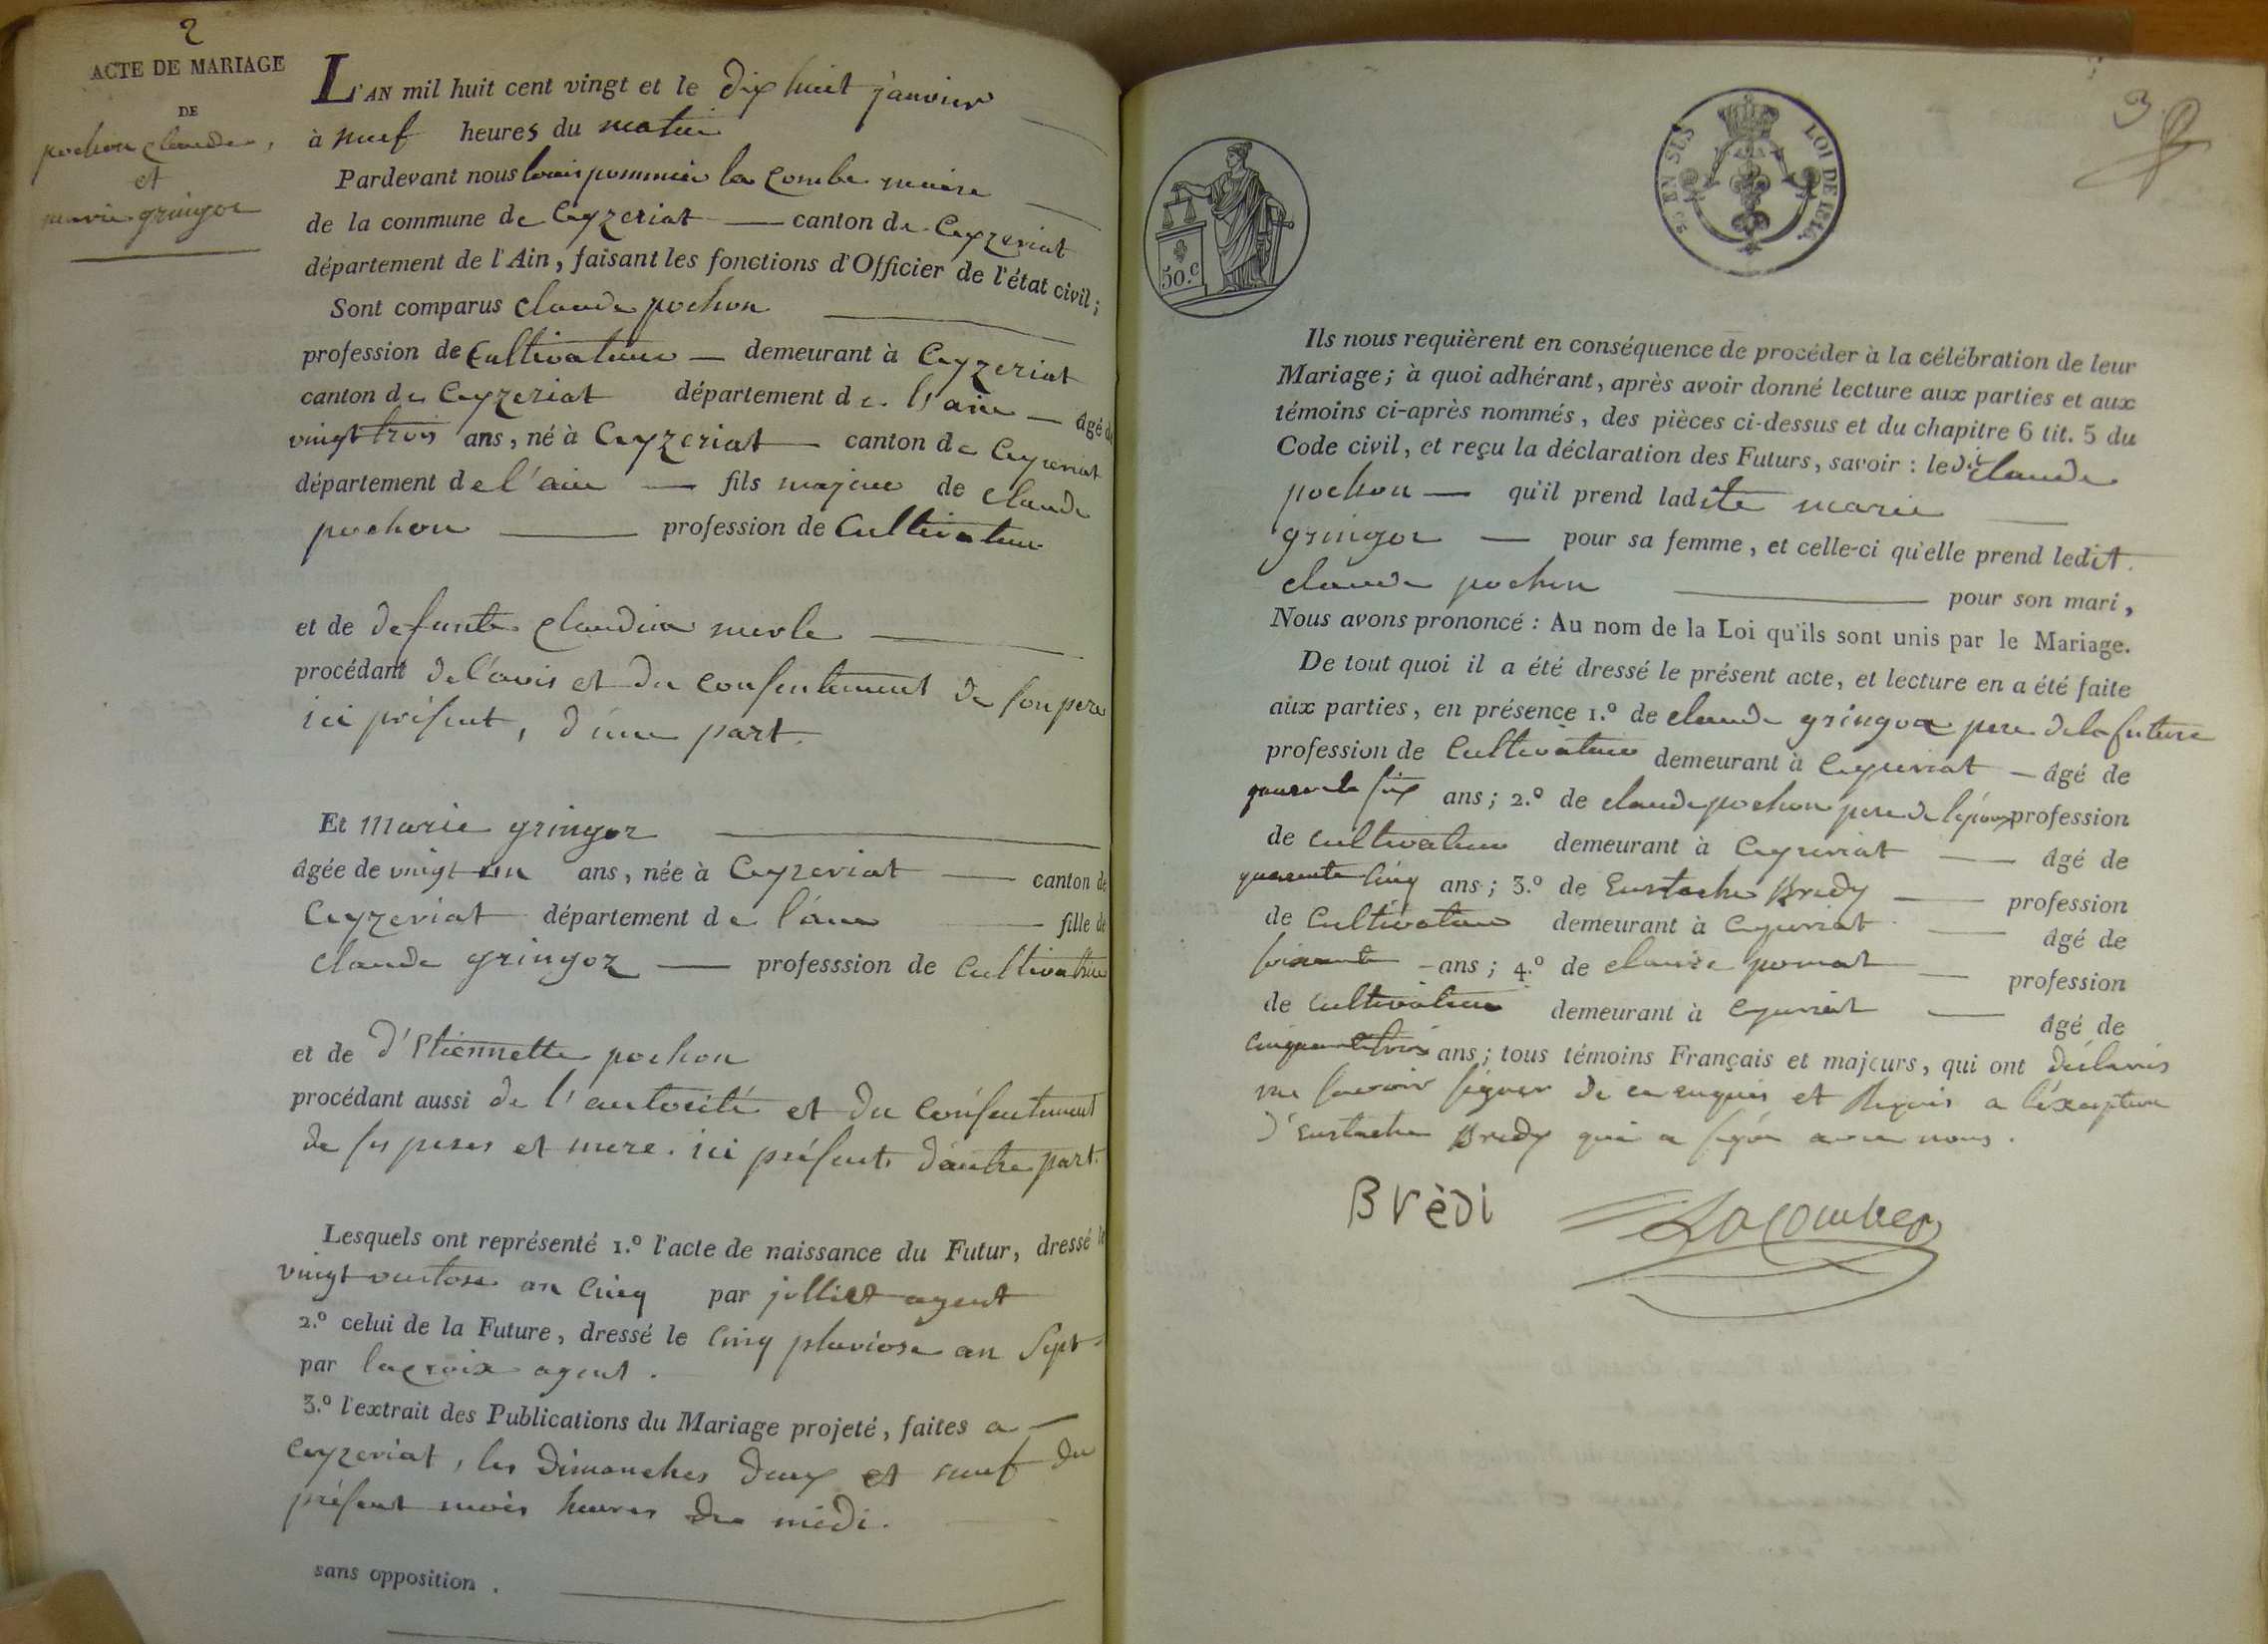 2
ACTE DE MARIAGE
DE
pochon claude,
et
marie gringoz
L'AN mil huit cent vingt et le dix huit janvier
à neuf heures du matin
Pardevant nous louis pommier la combe maire
de la commune de Ceyzeriat canton de Ceyzeriat
département de l'Ain, faisant les fonctions d'Officier de l'état civil;
Sont comparus claude pochon
profession de Cultivateur demeurant à Ceyzeriat
canton de Ceyzeriat département de l'ain âgé de
vingt trois ans, né à Ceyzeriat canton de Ceyzeriat
département de l'ain fils majeur de claude
pochon profession de Cultivateur
et de defunte claudine merle
procédant de l'avis et du consentement de son pere
ici présent, d'une part.
Et Marie gringoz
âgée de vingt un ans, née à Ceyzeriat canton de
Ceyzeriat département de l'ain fille de
claude gringoz professsion de Cultivateur
et de d'Etiennette pochon
procédant aussi de l'autorité et du consentement
de ses peres et mere. ici présents d'autre part.
Lesquels ont représenté 1.º l'acte de naissance du Futur, dressé le
vingt ventose an Cinq par jolliet agent
2.º celui de la Future, dressé le Cinq pluviose an Sept
par lacroix agent.
3.º l'extrait des Publications du Mariage projeté, faites a
Ceyzeriat, les dimanches deux et neuf du
présent mois heures de midi.
sans opposition.
50.c
EN SUS
LOI DE 1816.
3
Ils nous requièrent en conséquence de procéder à la célébration de leur
Mariage; à quoi adhérant, après avoir donné lecture aux parties et aux
témoins ci-après nommés, des pièces ci-dessus et du chapitre 6 tit. 5 du
Code civil, et reçu la déclaration des Futurs, savoir : ledit claude
pochon qu'il prend ladite marie
gringoz pour sa femme, et celle-ci qu'elle prend ledit
claude pochon pour son mari,
Nous avons prononcé : Au nom de la Loi qu'ils sont unis par le Mariage.
De tout quoi il a été dressé le présent acte, et lecture en a été faite
aux parties, en présence 1.º de claude gringoz pere de la future
profession de Cultivateur demeurant à Ceyzeriat âgé de
quarante six ans; 2.º de claude pochon pere de l'époux profession
de cultivateur demeurant à Ceyzeriat âgé de
quarante cinq ans; 3.º de Eustache Bredy profession
de Cultivateur demeurant à Ceyzeriat âgé de
soixante ans; 4.º de claude pomat profession
de cultivateur demeurant à Ceyzeriat âgé de
cinquante trois ans; tous témoins Français et majeurs, qui ont déclarés
ne savoir signer de ce enquis et Requis a l'exception
d'Eustache Bredy qui a signé avec nous.
Brèdi Lacombe